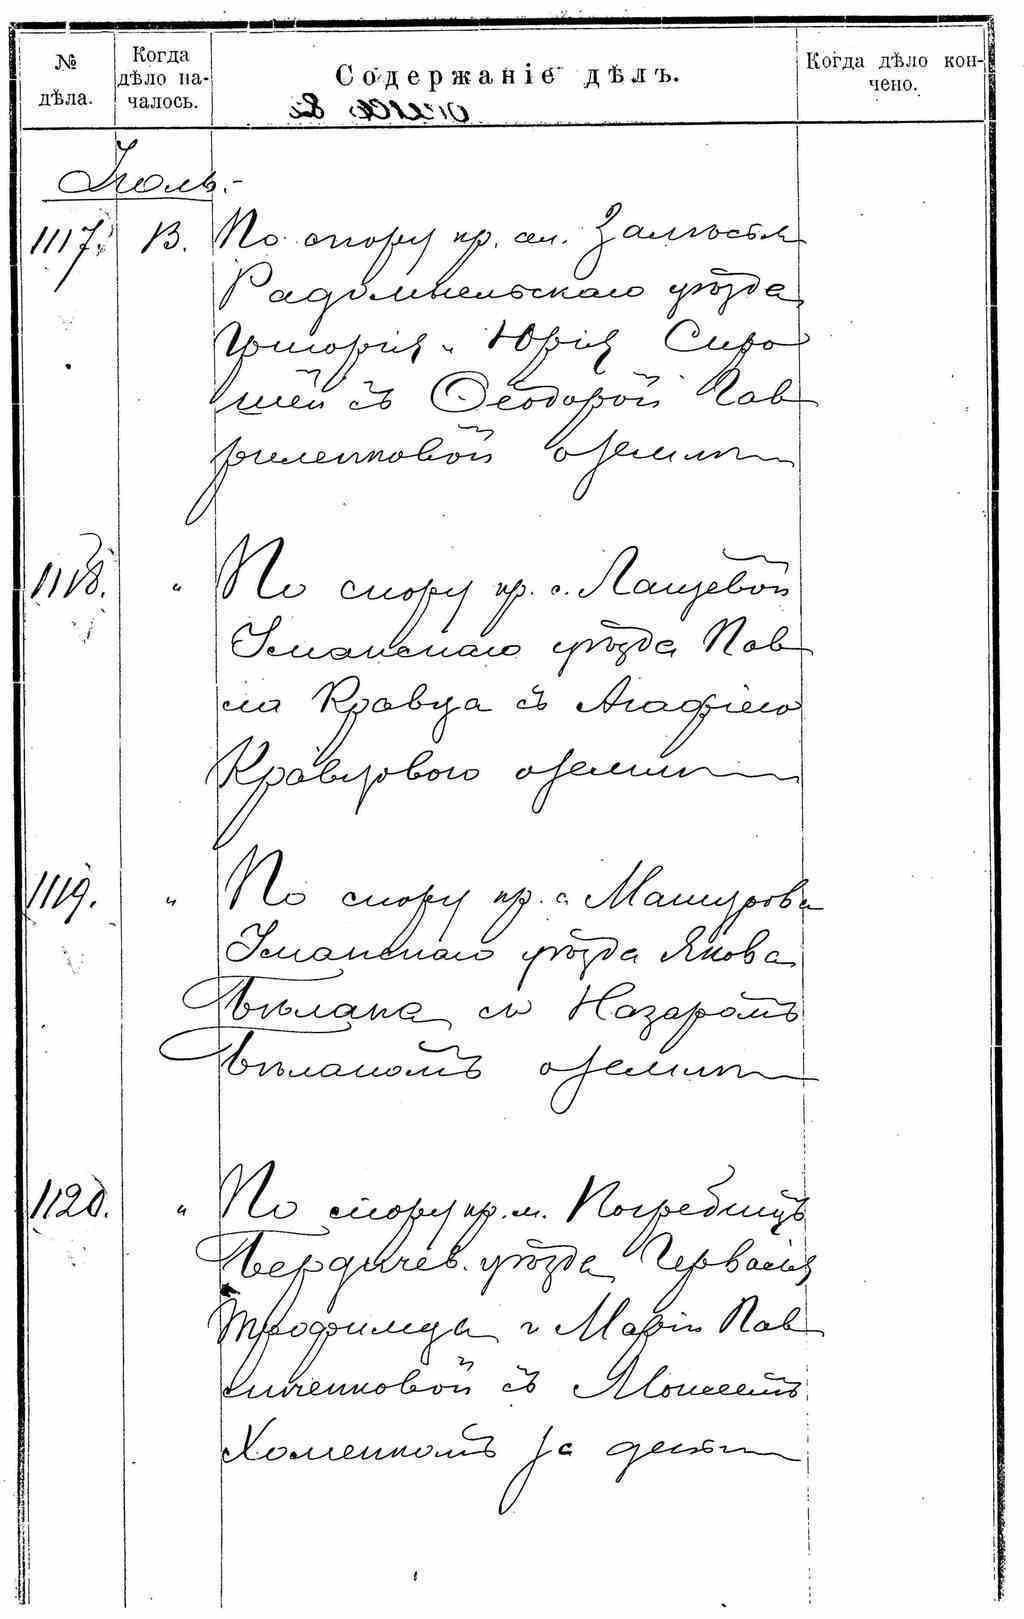 № дѣла.
Когда дѣло началось.
Содержаніе дѣлъ.
Когда дѣло кончено.
Іюль.-
1117. 13. По спору кр. сел. Замостья
Радомысльскаго уѣзда
Григорія и Юрія Сиро
шей съ Ѳеодорой Гав
риленковой о землѣ
1118. " По спору кр. с. Лащевой
Уманскаго уѣзда Пав
ла Кравца съ Агафіею
Кравцовою о землѣ
1119. " По спору кр. с. Машурова
Уманскаго уѣзда Якова
Бѣлана съ Назаромъ
Бѣланомъ о землѣ
1120. " По спору кр. м. Погребищъ
Бердичев. уѣзда Гервасія
Трофимца и Маріи Пав
личенковой съ Моисеемъ
Хоменкомъ за